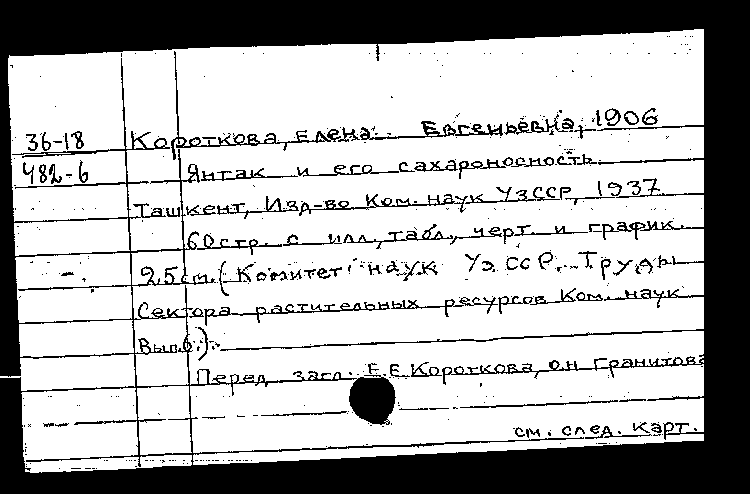 36-18 Короткова, Елена Евгеньевна, 1906
482-6 Янтак и его сахароносность.
Ташкент, Изд-во Ком. наук УзССР, 1937
60стр. с илл., табл., черт. и график.
25см. (Комитет наук УзССР. Труды
Сектора растительных ресурсов Ком. наук
Вып.6).
Перед загл. Е.Е.Короткова, О.Н Гранитова
см. след. карт.